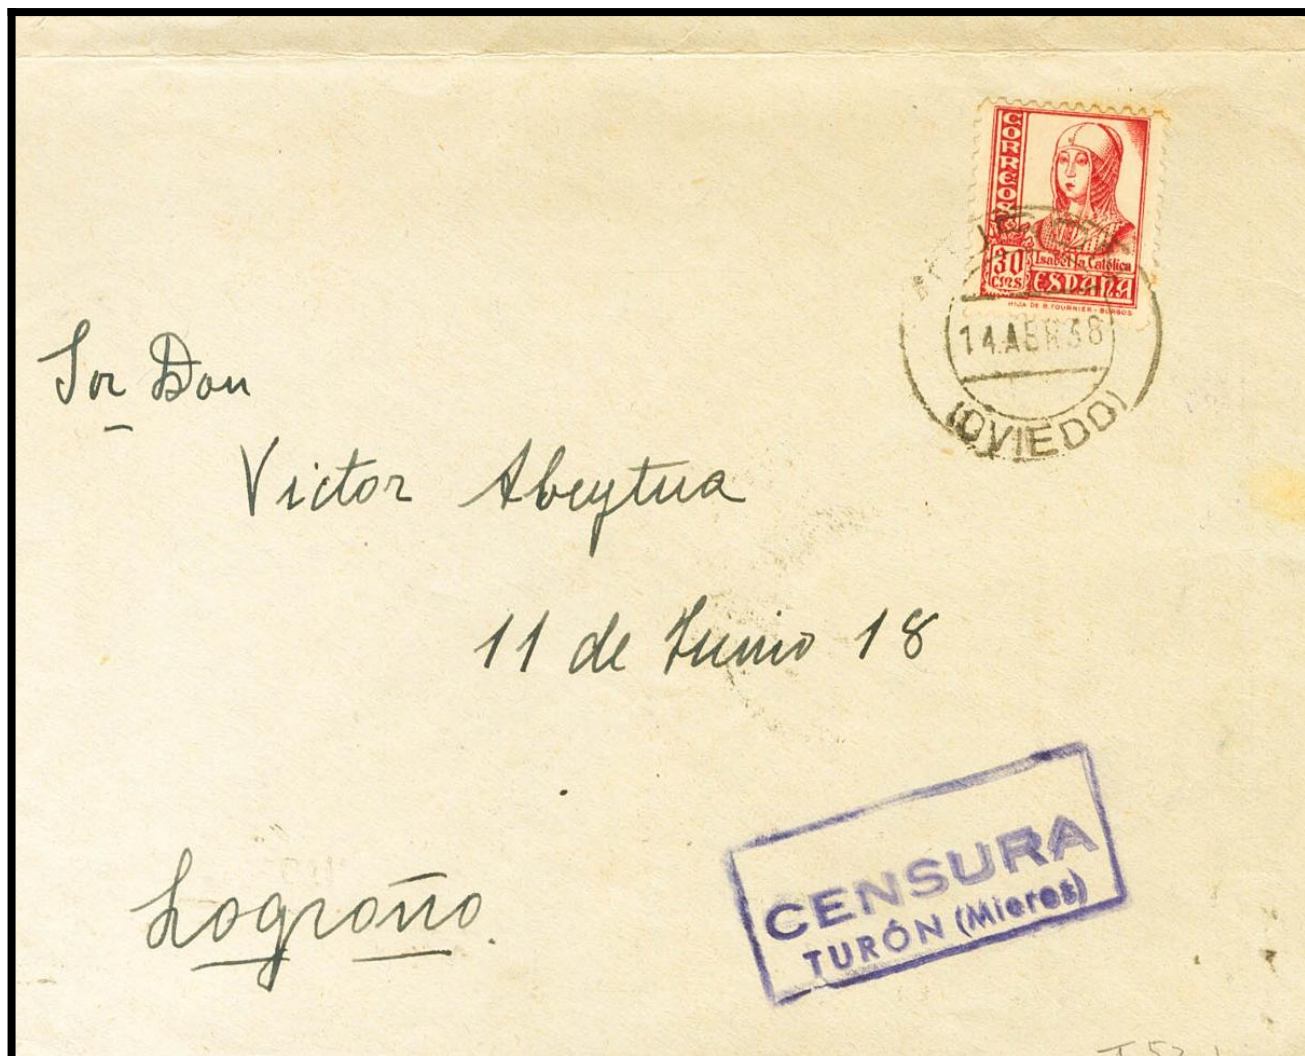 CORREOS
30
CTS
Isabel la Católica
ESPAÑA
HIJA DE B. FOURNIER - BURGOS
14.ABR 38
(OVIEDO)
Sor Don
Victor Abeytua
11 de Junio 18
Logroño.
CENSURA
TURÓN (Mieres)